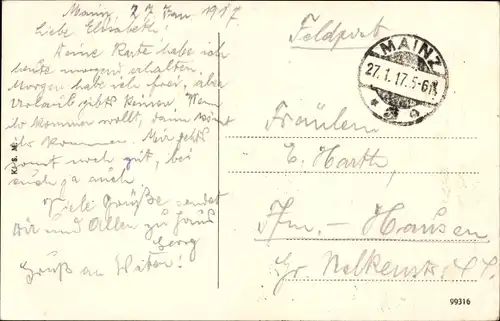 Mainz, 27. Jan. 1917.
Liebe Elisabeth!
Deine Karte habe ich
heute morgen erhalten.
Morgen habe ich frei, aber
Urlaub gibts keinen. Wenn
ihr kommen wollt, dann könnt
ihr kommen. Mir gehts
sonst noch gut, bei
euch ja auch
Viele Grüße sendet
Dir und Allen zu Haus
Georg
Gruß an
Feldpost
MAINZ
27.1.17.5-6N.
Fräulein
E. Harth
Ffm. - Hausen
Gr. Nelkenstr. 44.
K. S. M.
99316